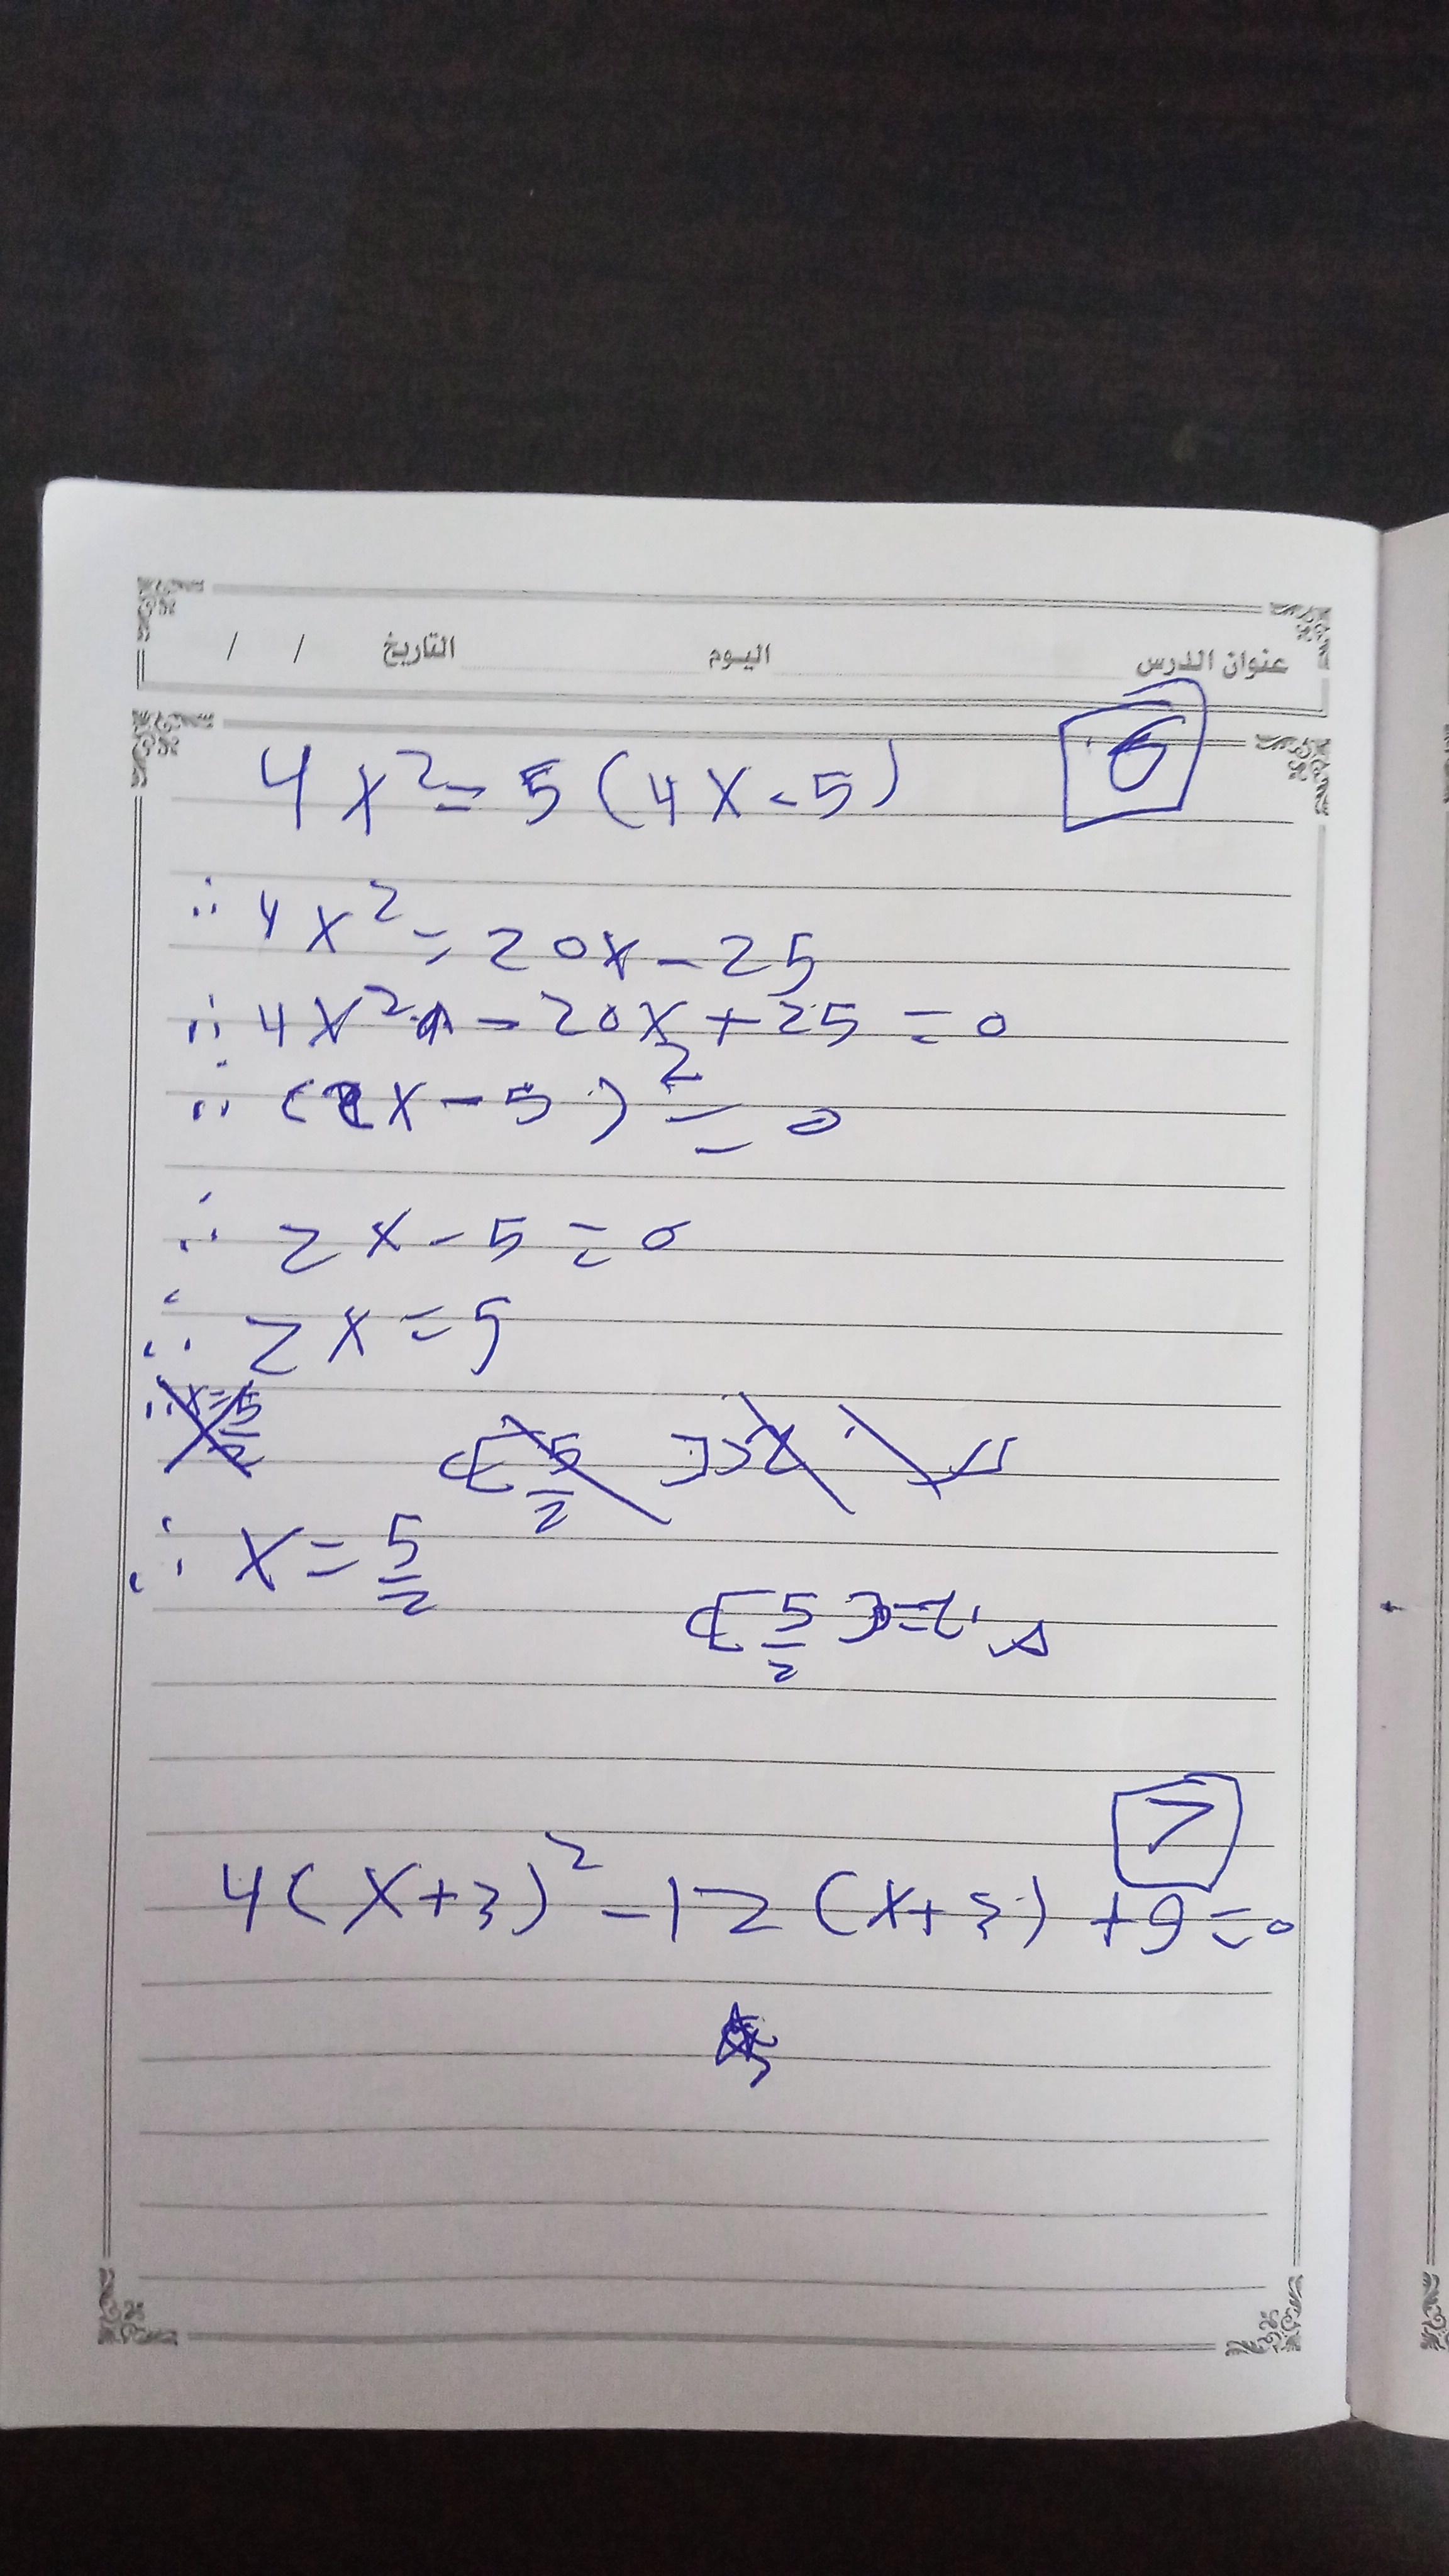 عنوان الدرس اليوم التاريخ / /
6
4x² = 5(4x-5)
∴ 4x² = 20x - 25
∴ 4x² - 20x + 25 = 0
∴ (2x - 5)² = 0
∴ 2x - 5 = 0
∴ 2x = 5
∴ x = 5/2
{5/2} = ح.م
7
4(x+3)² - 12(x+3) + 9 = 0